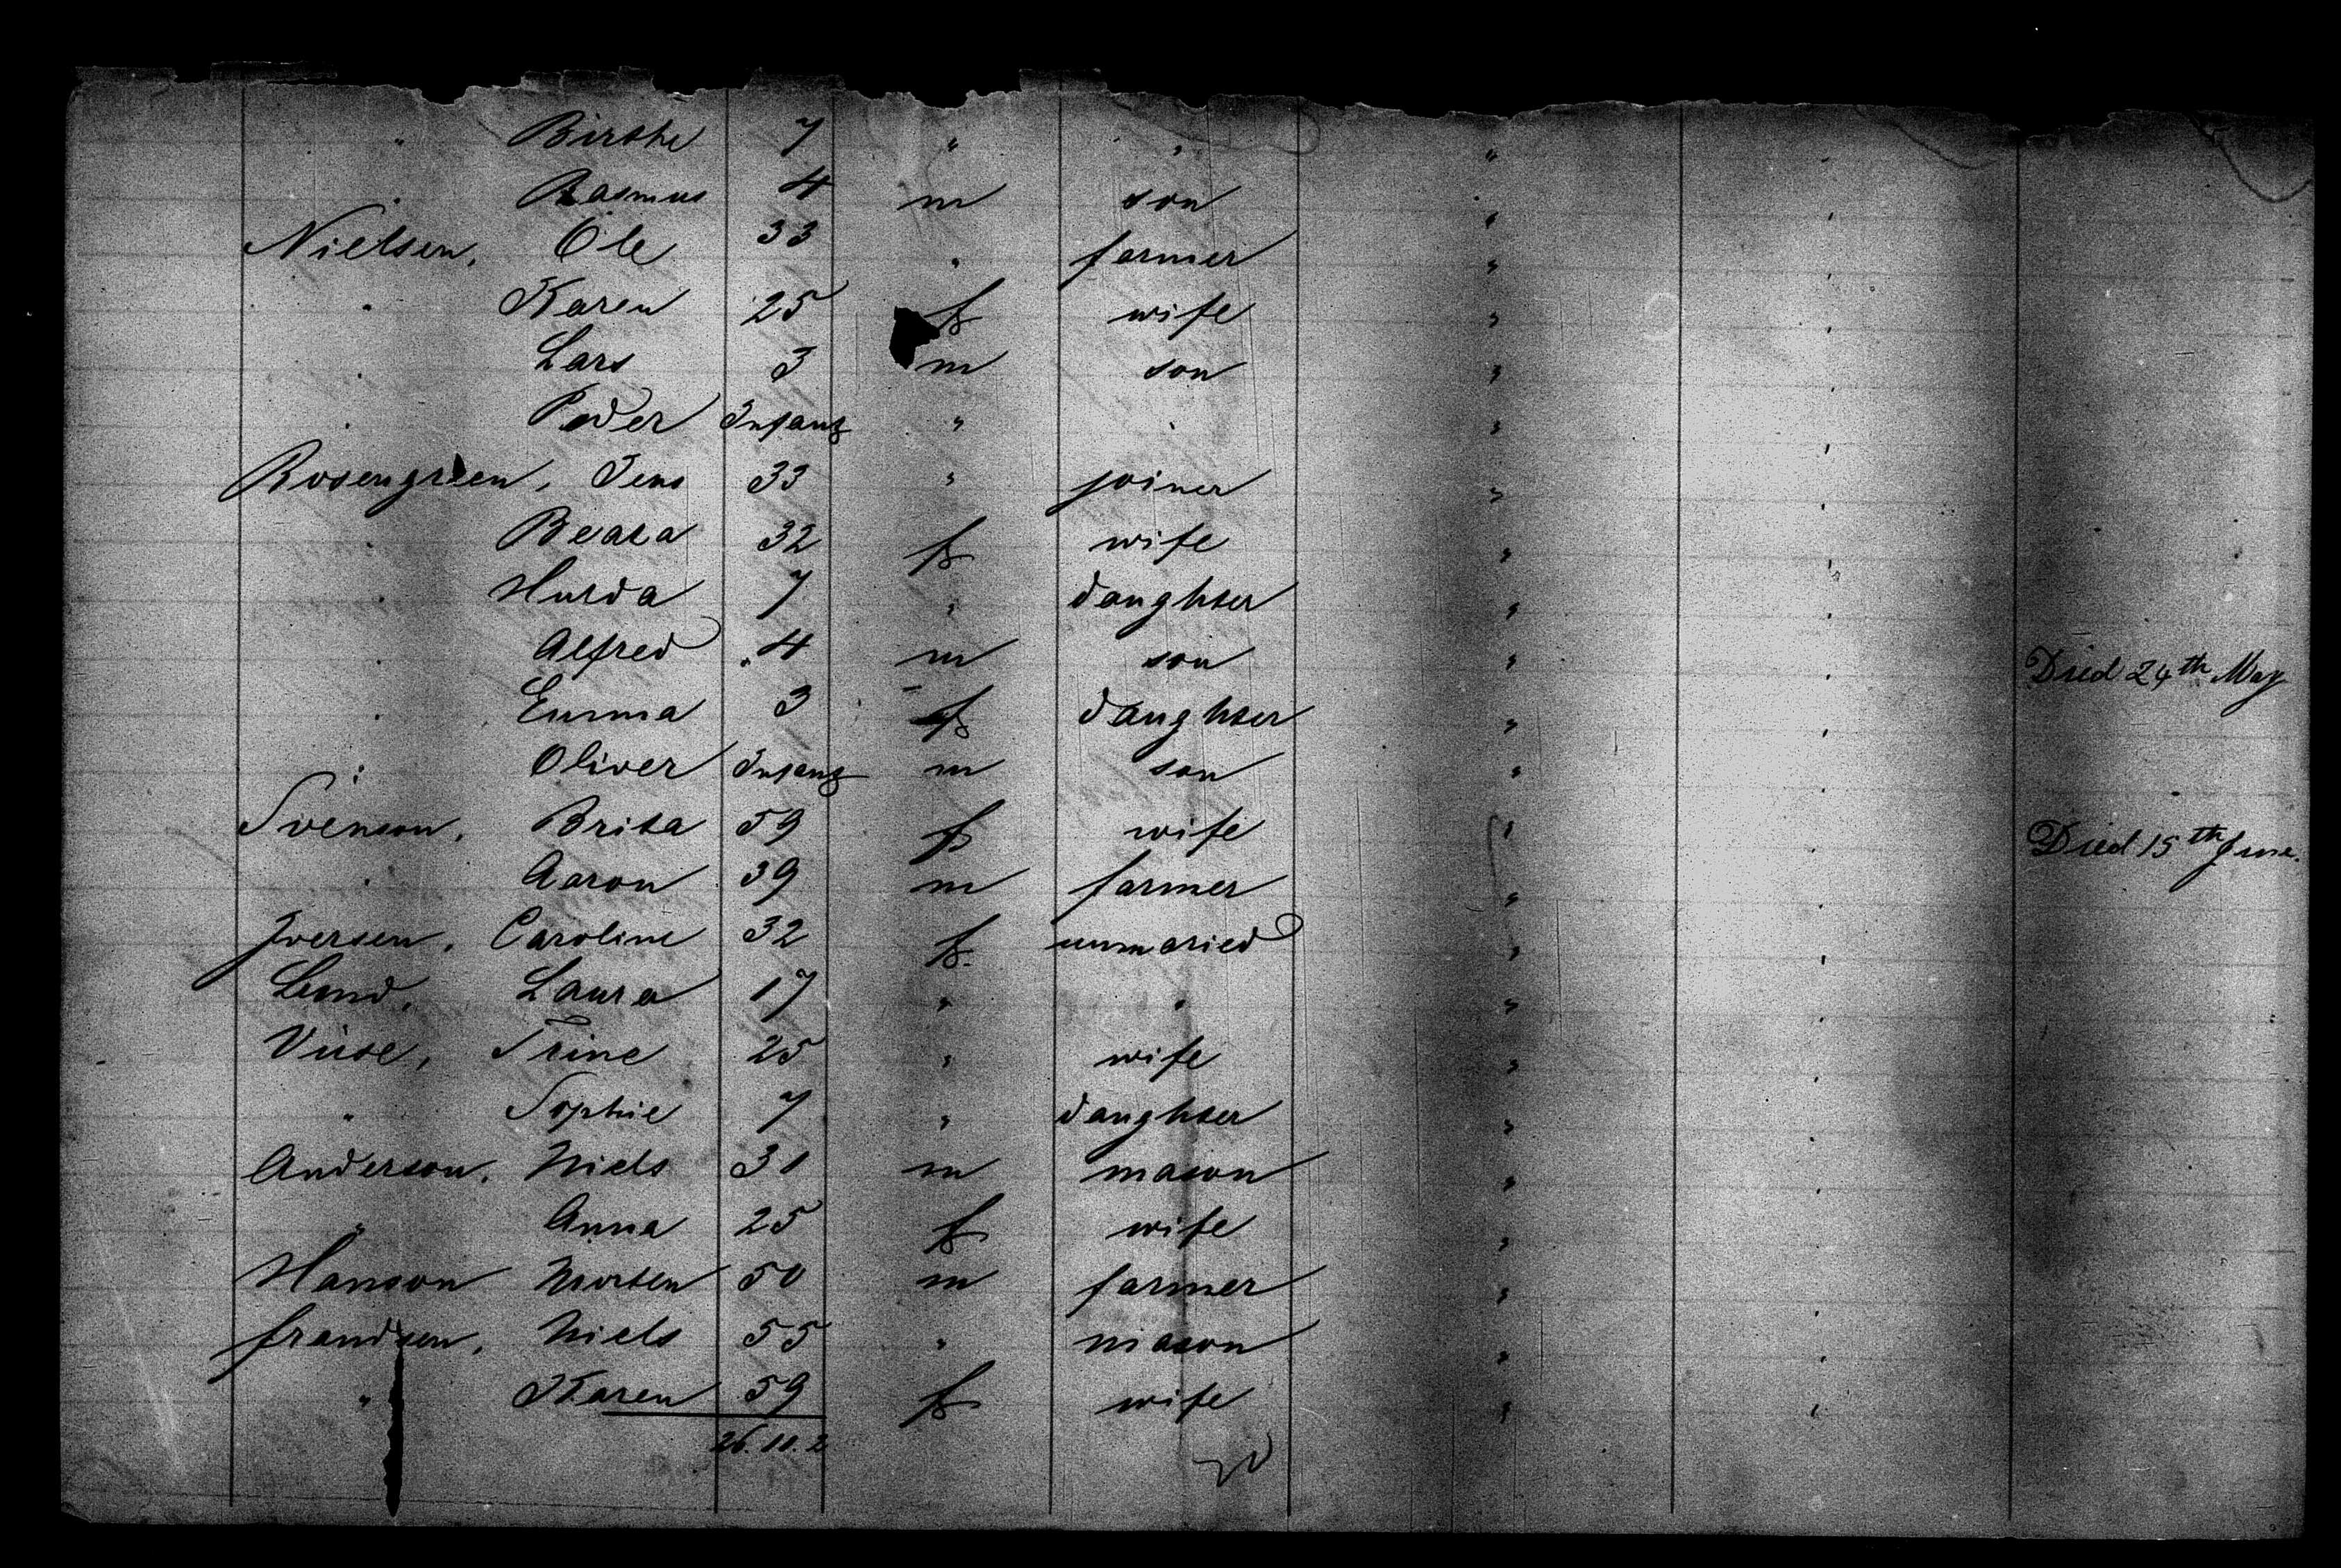 " Birthe 7 " " " "
" Rasmus 4 m son " "
Nielsen, Ole 33 " farmer " "
" Karen 25 f wife " "
" Lars 3 m son " "
" Peder Infant " " " "
Rosengreen, Jens 33 " joiner " "
" Beata 32 f wife " "
" Hulda 7 " daughter " "
" Alfred 4 m son " " Died 24th May
" Emma 3 f daughter " "
" Oliver Infant m son " "
Svenson, Brita 59 f wife " " Died 15th June.
" Aaron 39 m farmer " "
Iversen, Caroline 32 f. unmaried " "
Lund, Laura 17 " " " "
Viise, Trine 25 " wife " "
" Sophie 7 " daughter " "
Anderson, Niels 31 m mason " "
" Anna 25 f wife " "
Hanson Morten 50 m farmer " "
Frandsen, Niels 55 " mason " "
" Karen 59 f wife " "
26.11.2